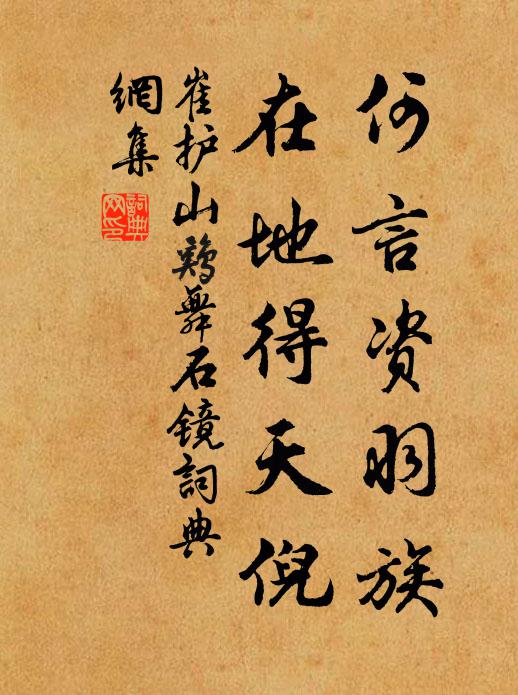 何言资羽族
在地得天倪
崔护山鸡舞石镜词典
網集
詞典
网印